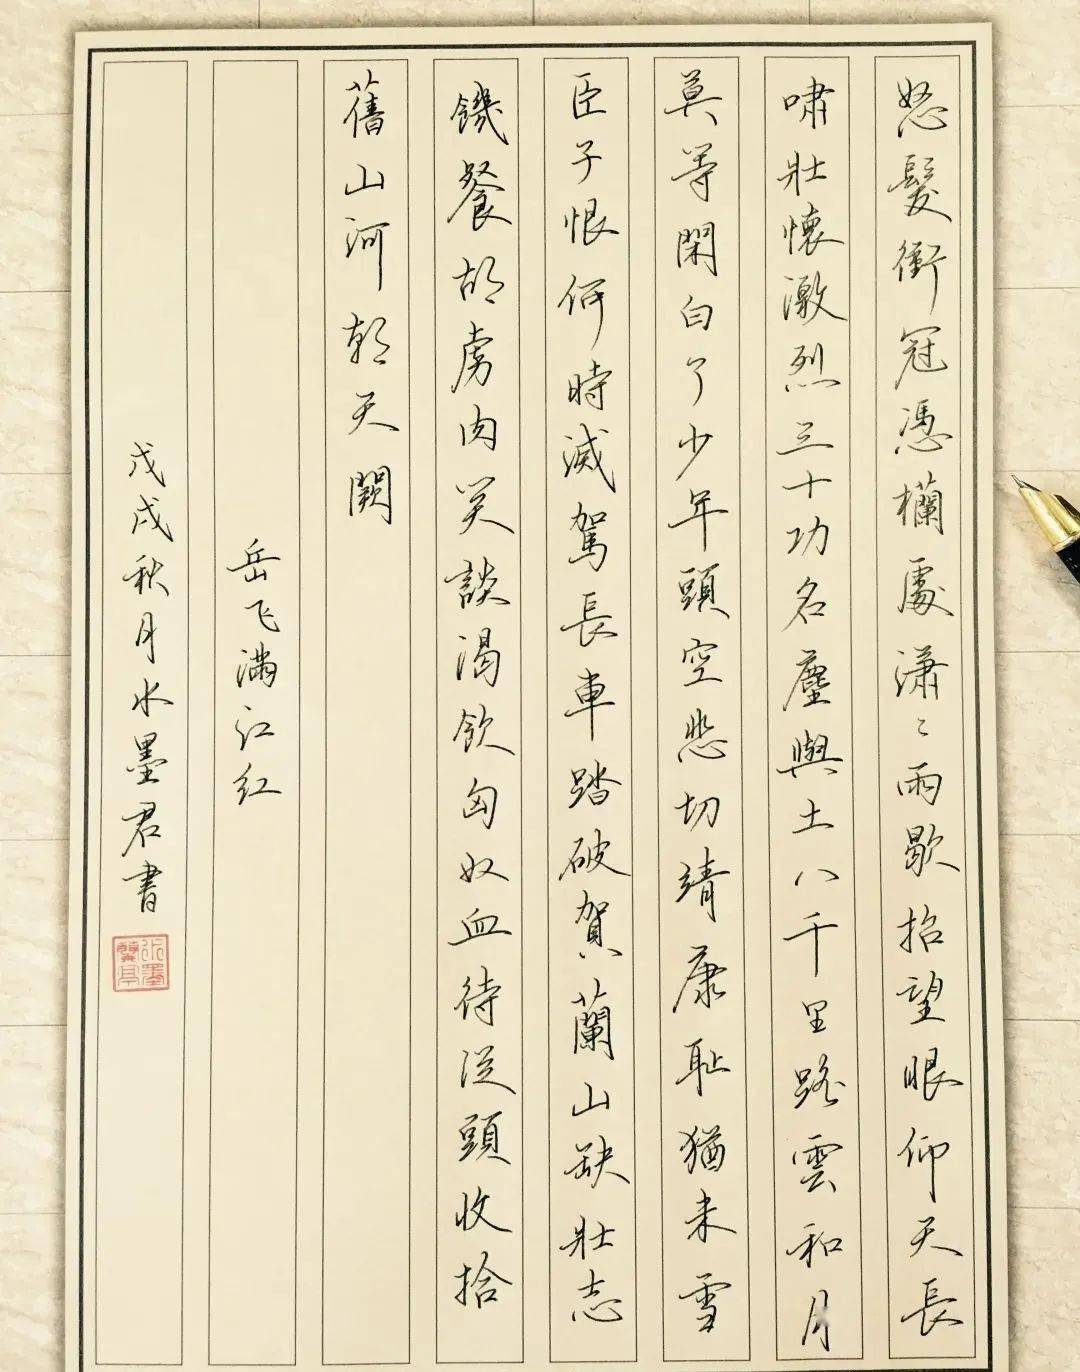 怒髮衝冠憑欄處潇〻雨歇抬望眼仰天長
嘯壯懷激烈三十功名塵與土八千里路雲和月
莫等閑白了少年頭空悲切靖康恥猶未雪
臣子恨何時滅駕長車踏破賀蘭山缺壯志
饑餐胡虜肉笑談渴飲匈奴血待從頭收拾
舊山河朝天闕
岳飞满江红
戊戌秋月水墨君書